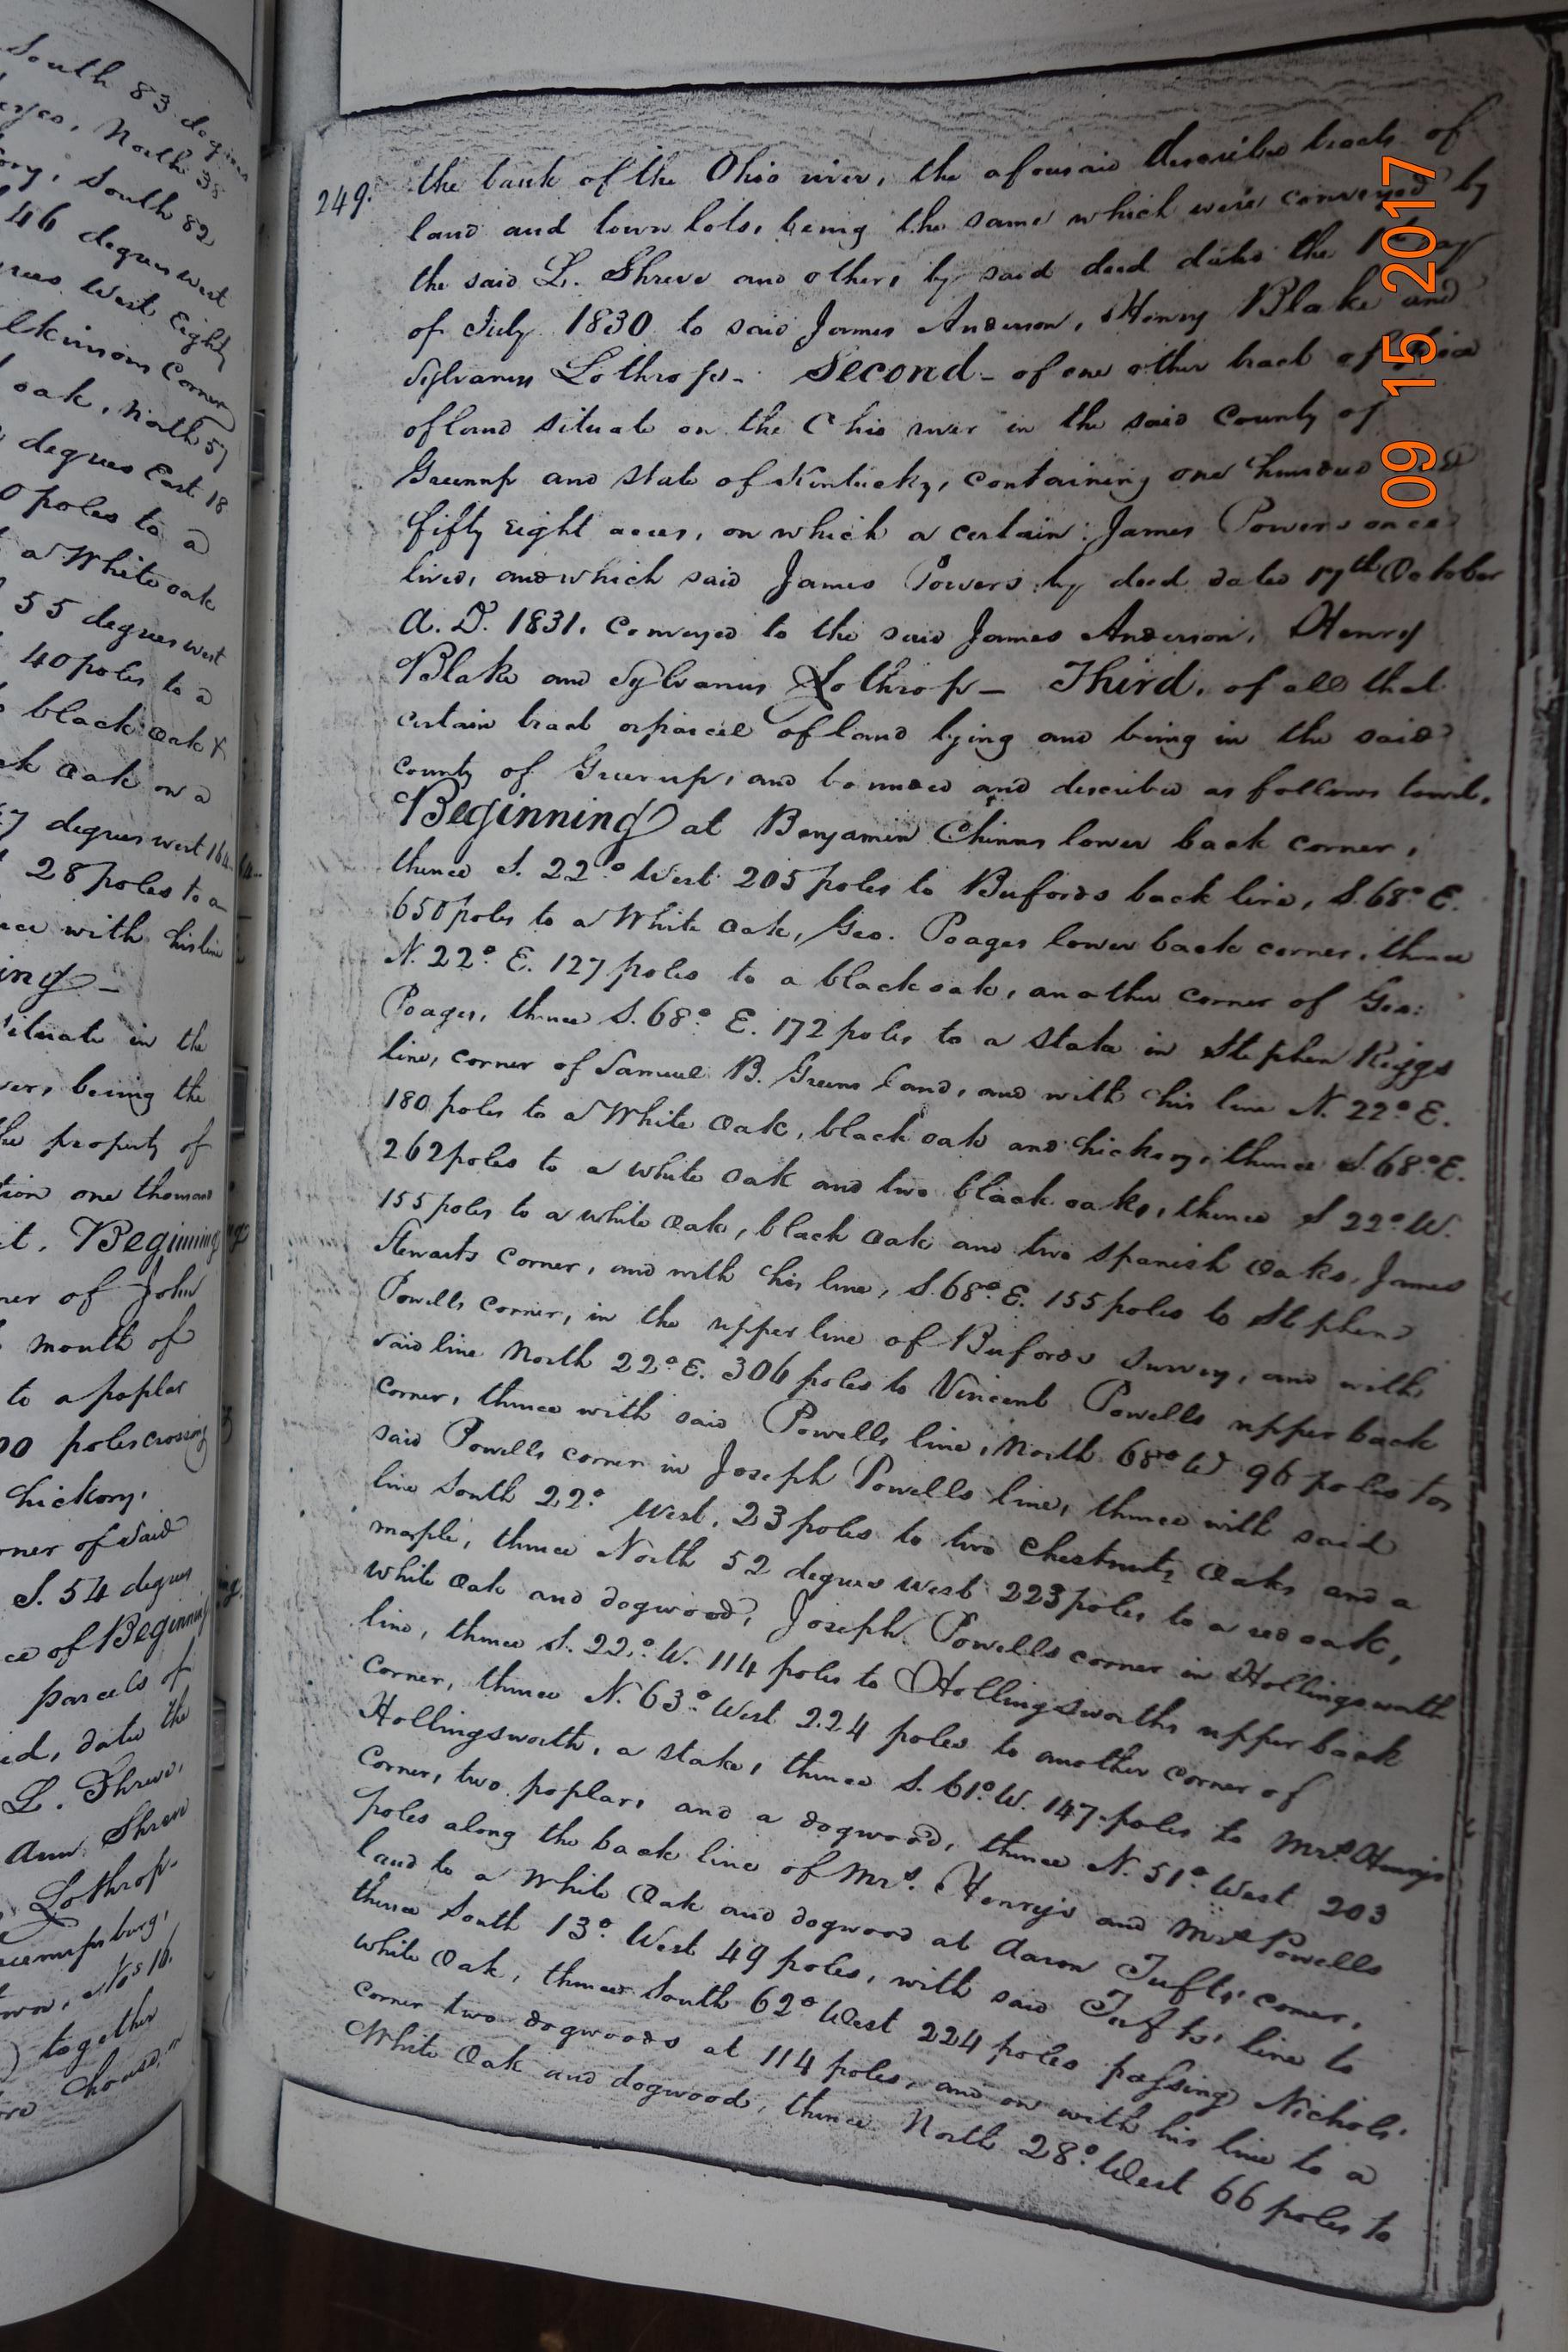 South 83 degrees
North 38
South 82
46 degrees west
West Eighty
Corner
oak, North 57
degrees East 18
poles to a
a White oak
55 degrees west
40 poles to a
black oak &
oak on a
degrees west 164
28 poles to a
with his line
situate in the
being the
the property of
one thousand
it. Beginning
of John
mouth of
to a poplar
poles crossing
hickory,
corner of said
S. 54 degrees
of Beginning
parcels of
date the
L. Shreve,
Ann Shreve
Lothrop-
together
249.
the bank of the Ohio river, the aforesaid described tracts of
land and town lots, being the same which were conveyed by
the said L. Shreve and others by said deed dated the 1st day
of July 1830 to said James Anderson, Henry Blake and
Sylvanus Lothrop- Second- of one other tract of
of land situate on the Ohio river in the said County of
Greenup and state of Kentucky, containing one hundred and
fifty eight acres, on which a certain James Powers once
lived, and which said James Powers by deed dated 17th October
A. D. 1831. Conveyed to the said James Anderson, Henry
Blake and Sylvanus Lothrop- Third, of all that
certain tract or parcel of land lying and being in the said
county of Greenup, and bounded and described as follows towit,
Beginning at Benjamin Chinns lower back corner,
thence S. 22° West 205 poles to Bufords back line, S. 68° E.
650 poles to a White Oak, Geo. Poages lower back corner, thence
N. 22° E. 127 poles to a black oak, another corner of Geo:
Poages, thence S. 68° E. 172 poles to a stake in Stephen Riggs
line, corner of Samuel B. Greens land, and with his line N. 22° E.
180 poles to a White Oak, black oak and hickory, thence S. 68° E.
262 poles to a white oak and two black oaks, thence S 22° W.
155 poles to a white oak, black oak and two spanish oaks, James
Stewarts corner, and with his line, S. 68° E. 155 poles to Stephen
Powells corner, in the upper line of Bufords survey, and with
said line North 22° E. 306 poles to Vincent Powells upper back
corner, thence with said Powells line, North 68° W 96 poles to
said Powells corner in Joseph Powells line, thence with said
line South 22° West, 23 poles to two Chestnut Oaks and a
maple, thence North 52 degrees west 223 poles to a red oak,
white oak and dogwood, Joseph Powells corner in Hollingsworth
line, thence S. 22° W. 114 poles to Hollingsworths upper back
corner, thence N. 63° West 224 poles to another corner of
Hollingsworth, a stake, thence S. 61° W. 147 poles to Mrs. Henrys
corner, two poplars and a dogwood, thence N. 51° West 203
poles along the back line of Mrs. Henry's and Mrs Powells
land to a White Oak and dogwood at Aaron Tufts' corner,
thence South 13° West 49 poles, with said Tufts' line to
white Oak, thence South 62° West 224 poles passing Nichols'
corner two dogwoods at 114 poles, and on with his line to a
White Oak and dogwood, thence North 28° West 66 poles to
09 15 2017